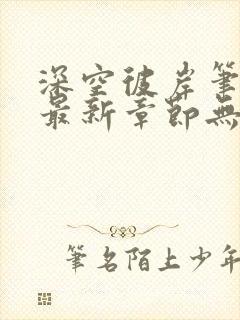 深空彼岸筆
最新章節無
筆名陌上少年